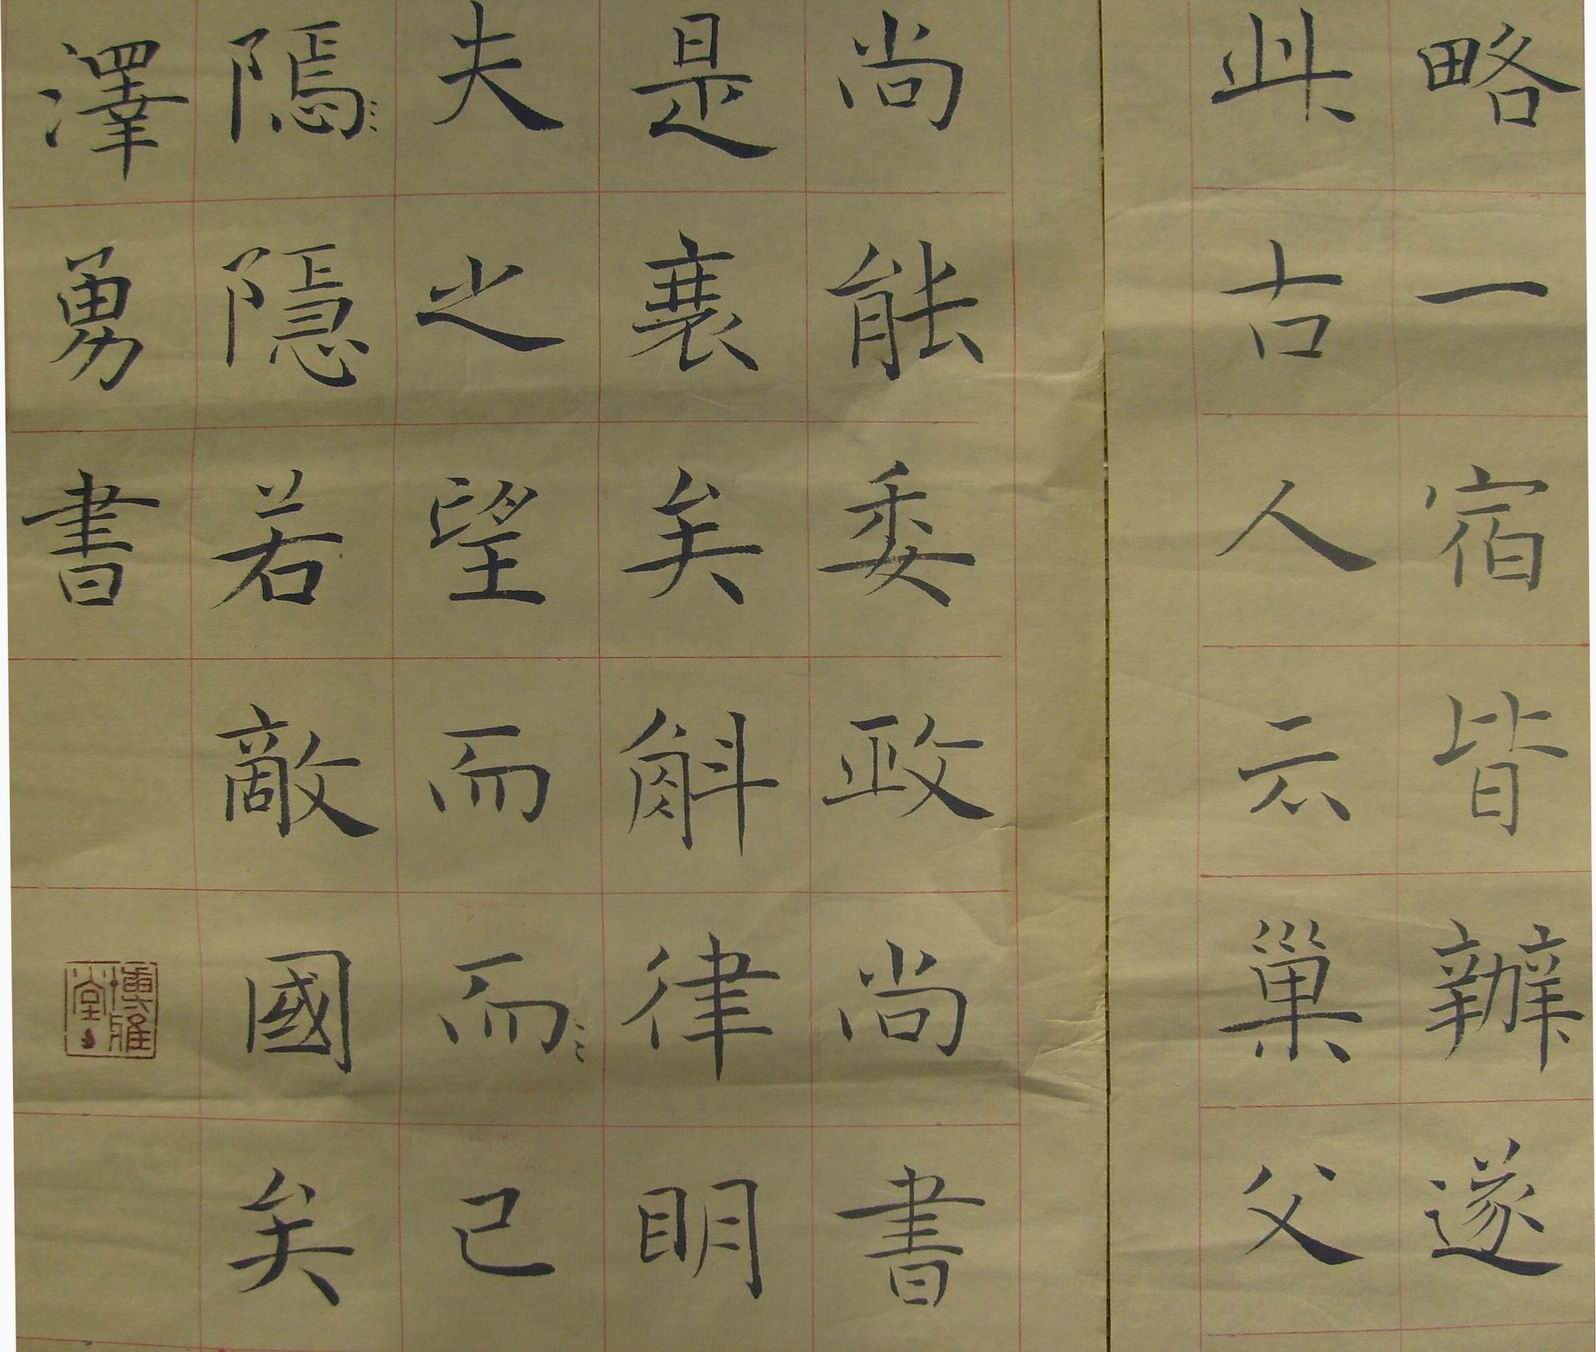 略一宿皆辦遂
此古人云巢父
尚能委政尚書
是衰矣斛律明
夫之望而而已
隱隱若敵國矣
澤勇書
博雅堂